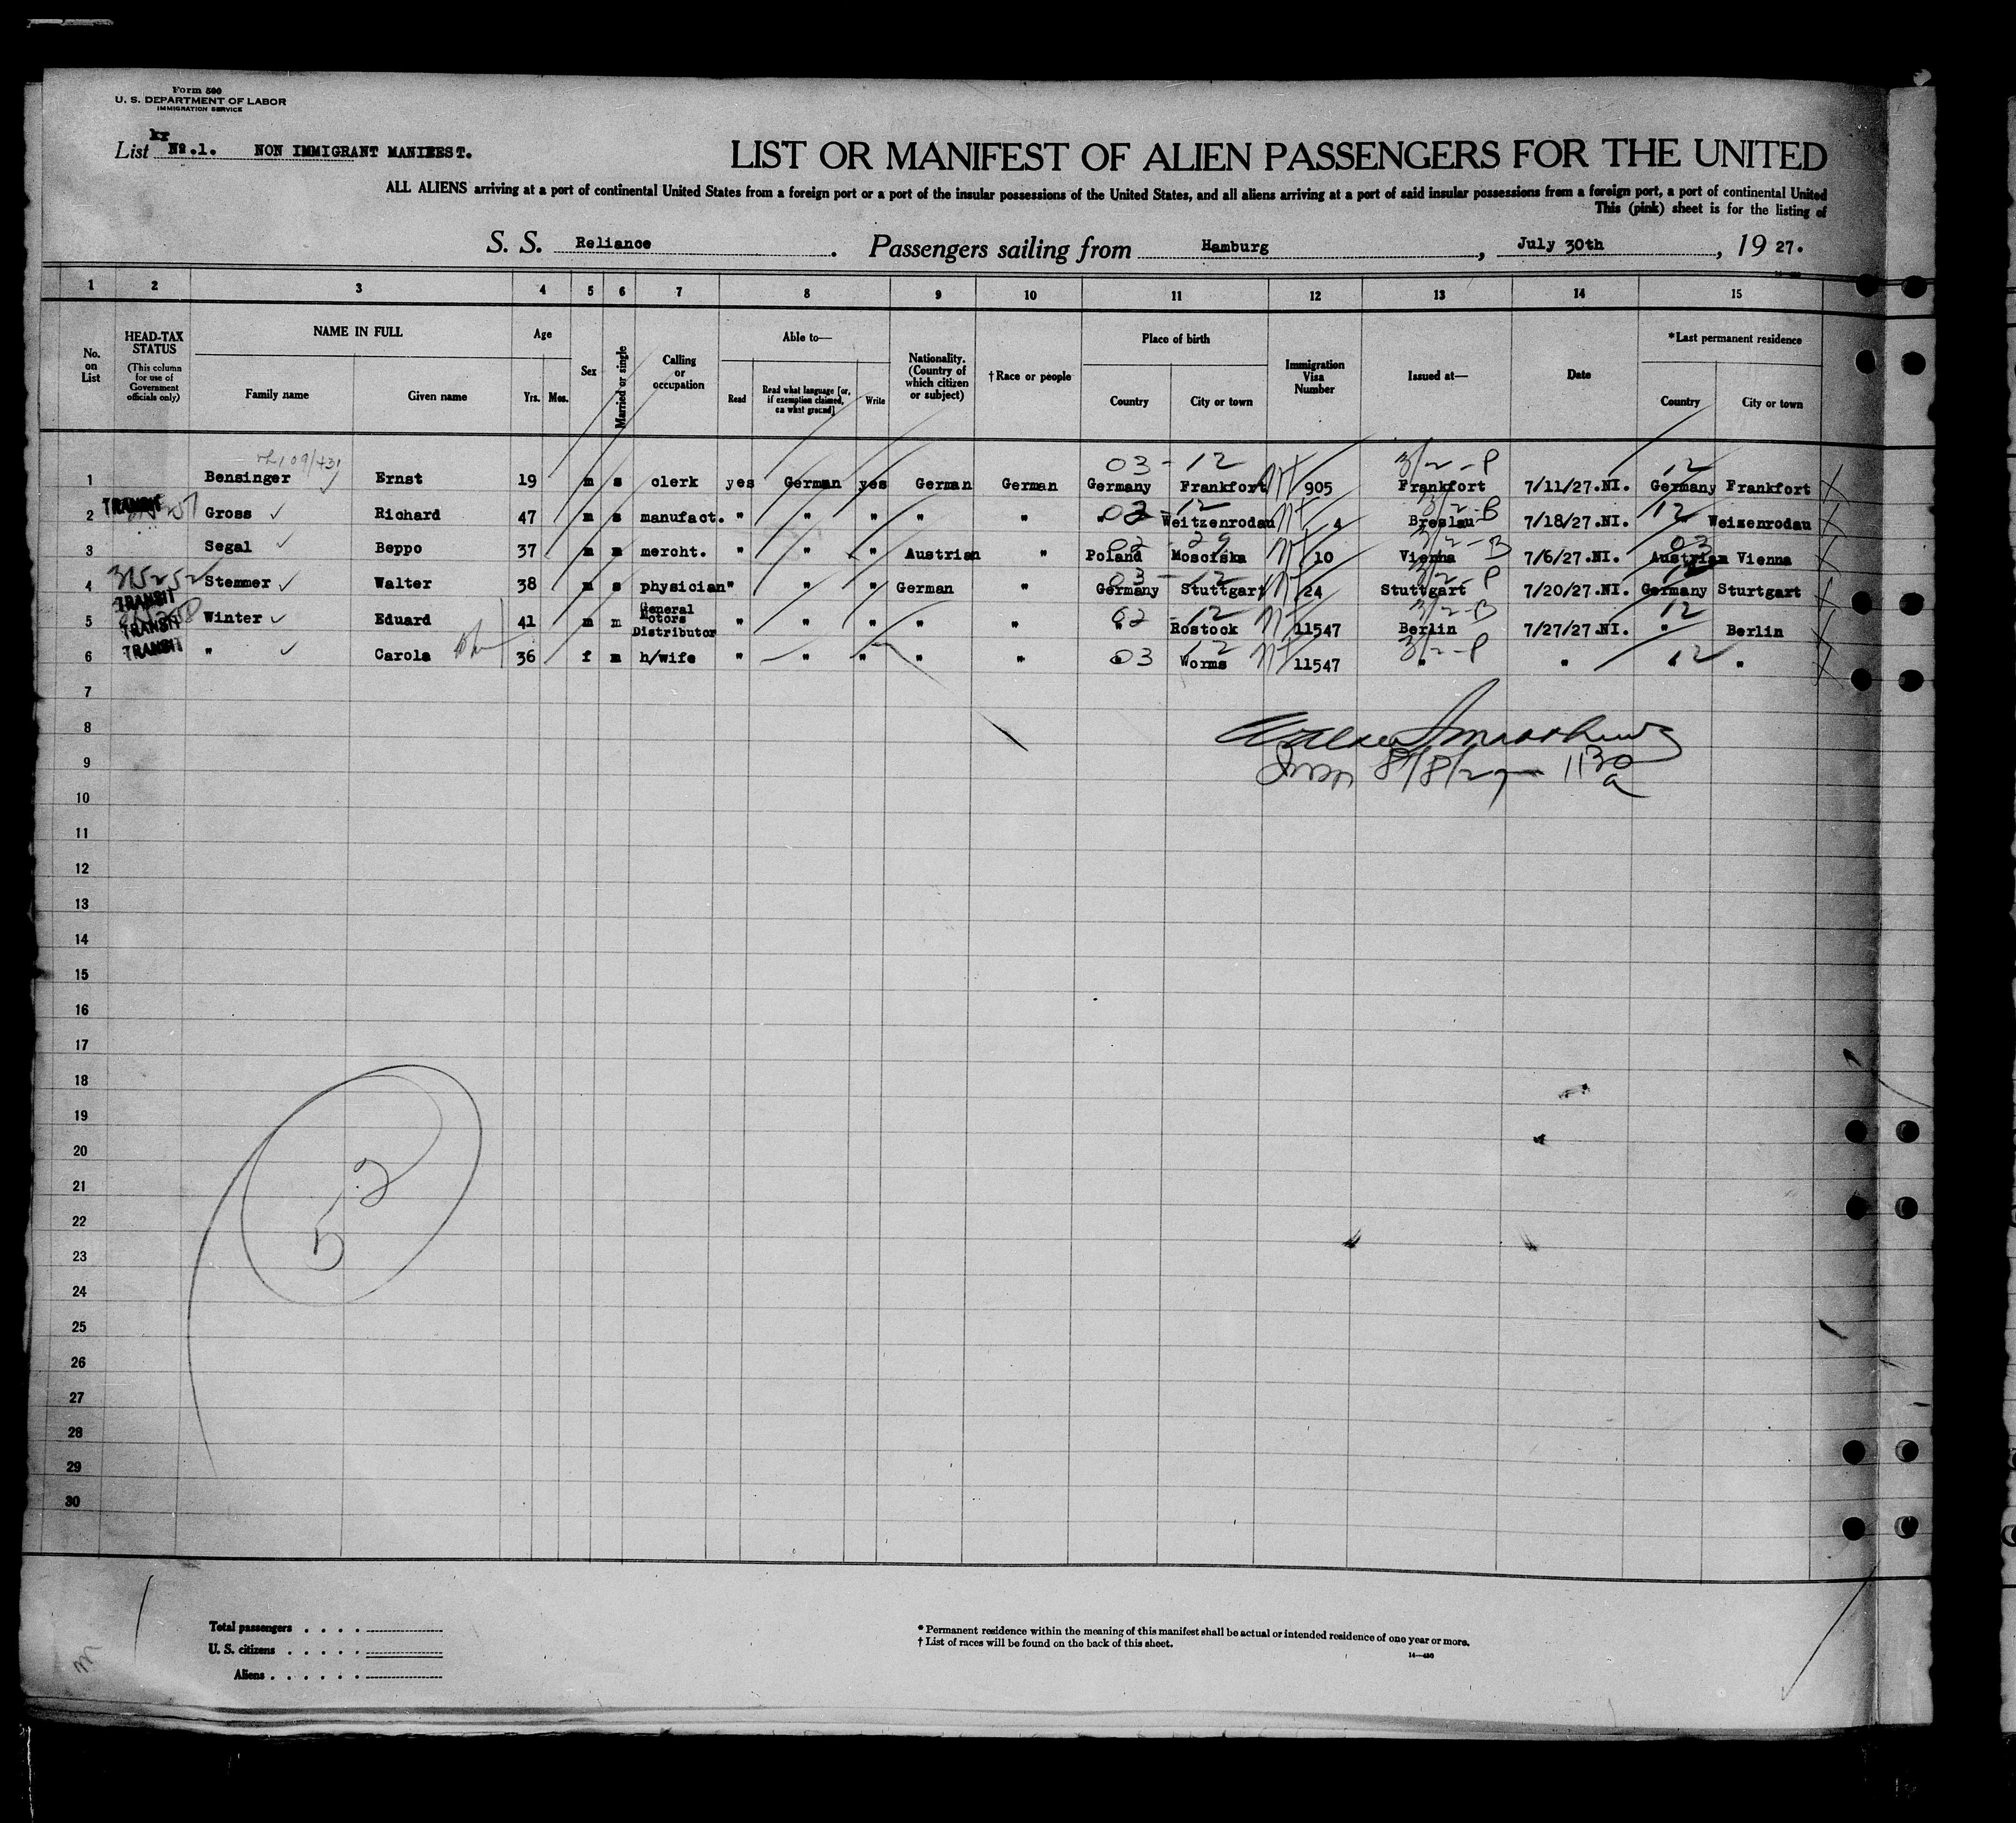 Form 500
U. S. DEPARTMENT OF LABOR
IMMIGRATION SERVICE
kr
List No.1. NON IMMIGRANT MANIFEST.
LIST OR MANIFEST OF ALIEN PASSENGERS FOR THE UNITED
ALL ALIENS arriving at a port of continental United States from a foreign port or a port of the insular possessions of the United States, and all aliens arriving at a port of said insular possessions from a foreign port, a port of continental United
This (pink) sheet is for the listing of
S. S. Reliance. Passengers sailing from Hamburg, July 30th, 1927.
1 2 3 4 5 6 7 8 9 10 11 12 13 14 15
No. on List
HEAD-TAX STATUS
(This column for use of Government officials only)
NAME IN FULL
Family name Given name
Age
Yrs. Mos.
Sex
Married or single
Calling or occupation
Able to—
Read
Read what language [or, if exemption claimed, on what ground]
Write
Nationality. (Country of which citizen or subject)
† Race or people
Place of birth
Country City or town
Immigration Visa Number
Issued at—
Date
*Last permanent residence
Country City or town
03 - 12 3/2-P 12
1 Bensinger Ernst 19 m s clerk yes German yes German German Germany Frankfort 905 Frankfort 7/11/27.NI. Germany Frankfort
TRANSIT
2 Gross Richard 47 m s manufact. " " " " " " Weitzenrodau 4 Breslau 7/18/27.NI. " Weizenrodau
3 Segal Beppo 37 m m mercht. " " " Austrian " Poland Mosciska 10 Vienna 7/6/27.NI. Austrian Vienna
315252
4 Stemmer Walter 38 m s physician " " " German " Germany Stuttgart 24 Stuttgart 7/20/27.NI. Germany Sturtgart
TRANSIT
5 Winter Eduard 41 m m General Motors Distributor " " " " " " Rostock 11547 Berlin 7/27/27.NI. " Berlin
TRANSIT
6 " Carola 36 f m h/wife " " " " " 03 Worms 11547 " " 12 "
TRANSIT
7
8
9
8/8/27 1130 a
10
11
12
13
14
15
16
17
18
19
20
21
22
23
24
25
26
27
28
29
30
52
Total passengers . . . .
U. S. citizens . . . . .
Aliens . . . . . .
* Permanent residence within the meaning of this manifest shall be actual or intended residence of one year or more.
† List of races will be found on the back of this sheet.
14—430